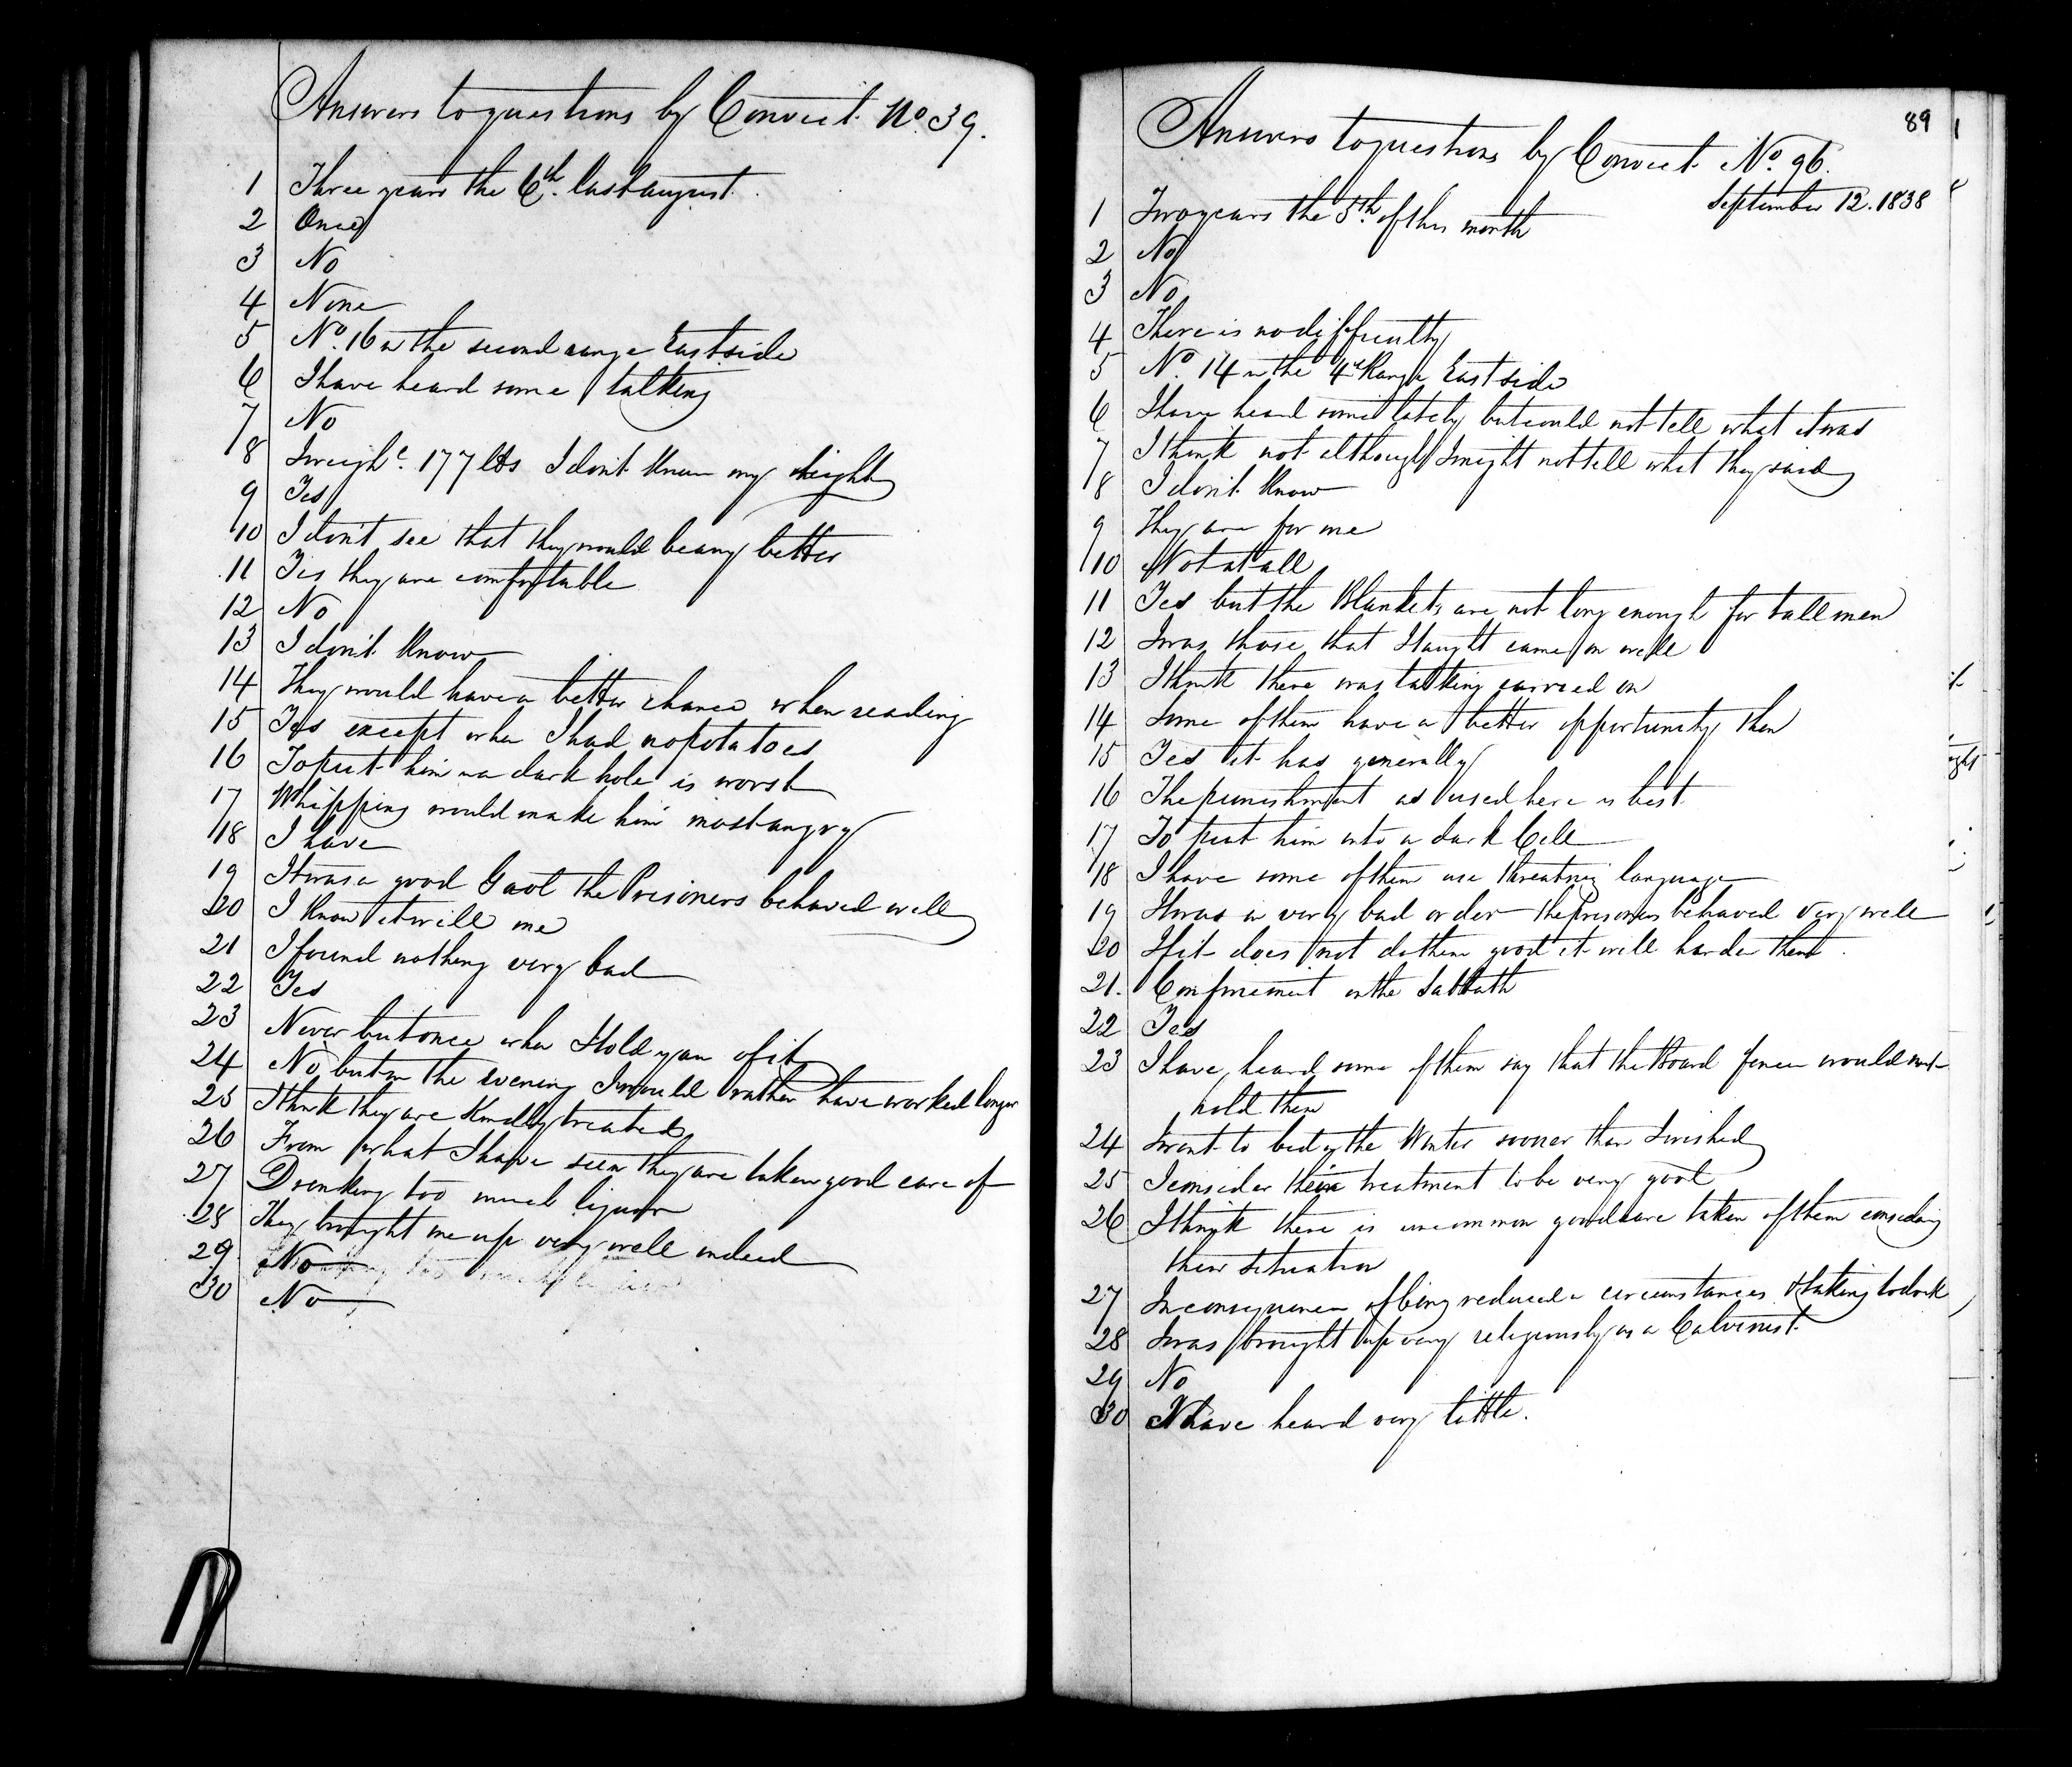 Answers to questions by Convict No. 39.
1 Three years the 6th. last august.
2 Once
3 No
4 None
5 No. 16 in the second range East side
6 I have heard some talking
7 No
8 I weighd. 177 lbs I don't know my height
9 Yes
10 I don't see that they would be any better
11 Yes they are comfortable
12 No
13 I don't know
14 They would have a better chance when reading
15 Yes except when I had no potatoes
16 To put him in a dark hole is worst
17 Whipping would make him most angry
18 I have
19 It was a good Gaol the Prisoners behaved well
20 I know it will me
21 I found nothing very bad
22 Yes
23 Never but once when I told you of it
24 No, but in the evening I would rather have worked longer
25 I think they are kindly treated
26 From what I have seen they are taken good care of
27 Drinking too much liquor
28 They brought me up very well indeed
29 No
30 No
89
Answers to questions by Convict No. 96.
September 12. 1838
1 Two years the 5th. of this month
2 No
3 No
4 There is no difficulty
5 No. 14 in the 4th Range East side
6 I have heard some lately but could not tell what it was
7 I think not although I might not tell what they said
8 I don't know
9 They are for me
10 Not at all
11 Yes but the Blankets are not long enough for tall men
12 I was those that I taught came on well
13 I think there was talking carried on
14 Some of them have a better opportunity then
15 Yes it has generally
16 The punishment as used here is best
17 To put him into a dark Cell
18 I have some of them use threatnig language
19 It was in very bad order the Prisoners behaved very well
20 If it does not do them good it will harden them.
21. Confinement on the Sabbath
22 Yes
23 I have heard some of them say that the Board fence would not
hold them
24 I went to bed in the Winter sooner than I wished
25 I consider their treatment to be very good
26 I think there is uncommon good care taken of them considering
their situation
27 In consequence of being reduced in circumstances & taking to drink
28 I was brought up very religiously as a Calvinist.
29 No
30 I have heard very little.